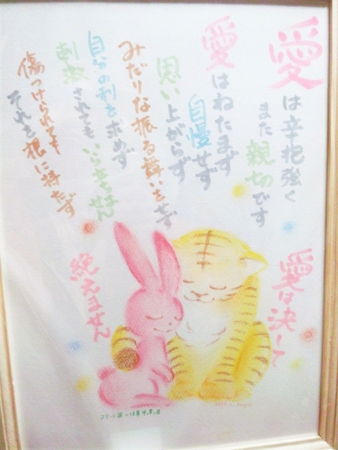 愛は辛抱強く
また親切です
愛はねたまず
自慢せず
思い上がらず
みだりな振る舞いをせず
自分の利を求めず
刺激されてもいら立ちません
傷つけられても
それを根に持たず
愛は決して
絶えません